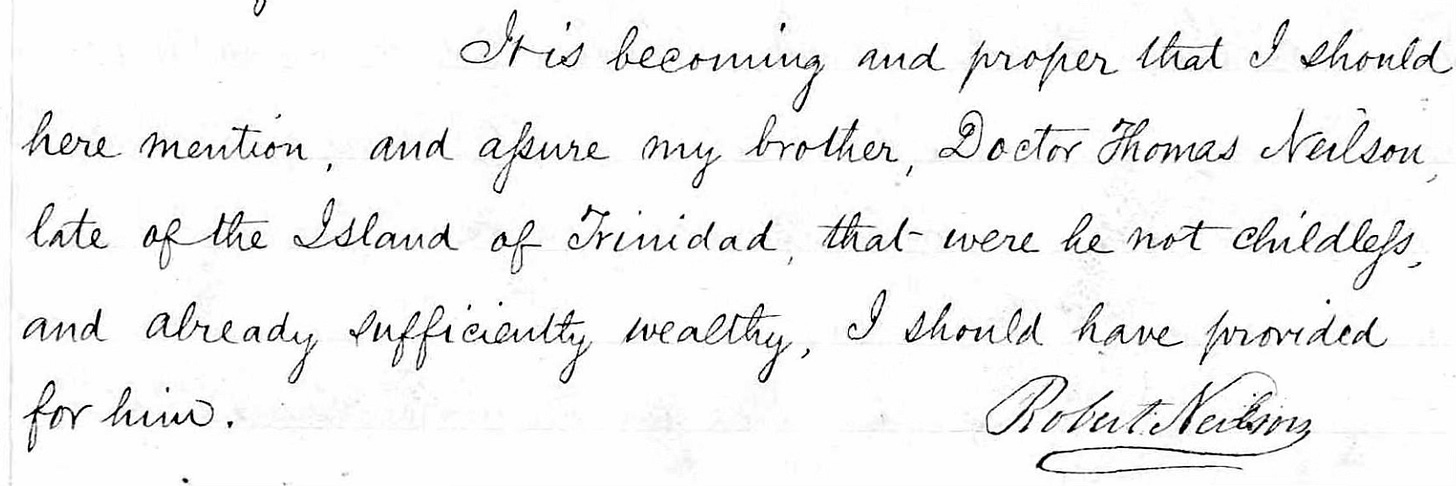 It is becoming and proper that I should
here mention, and aſsure my brother, Doctor Thomas Neilson,
late of the Island of Trinidad, that were he not childleſs,
and already sufficiently wealthy, I should have provided
for him.
Robert Neilson